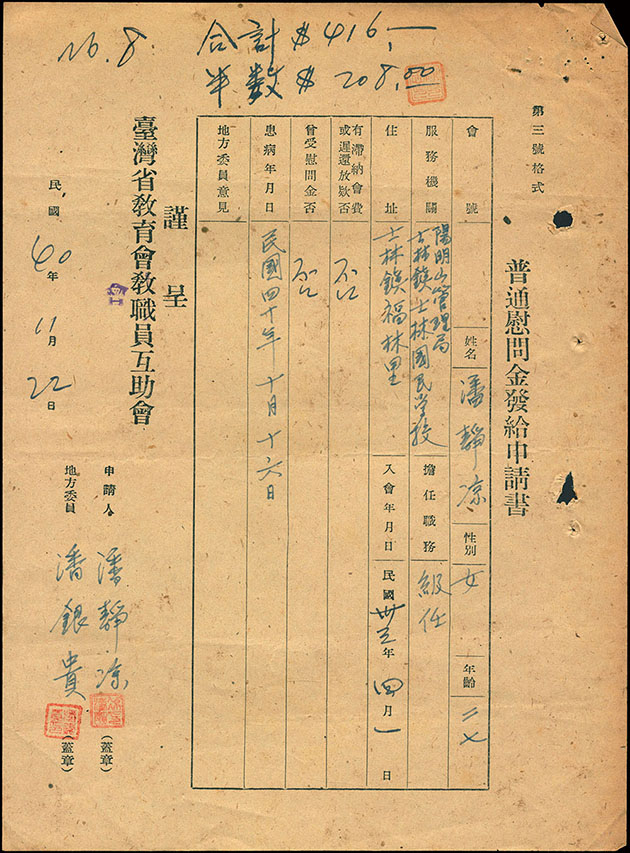 No. 8.
合計 $416.—
半数 $208.00
第三號格式
普通慰問金發給申請書
會號
姓名 潘靜凉
性別 女
年齡 二七
服務機關 陽明山管理局
士林鎮士林國民学校
擔任職務 級任
住址 士林鎮福林里
入會年月日 民國卅五年四月1日
有滯納會費
或遲還放欵否 否
曾受慰問金否 否
患病年月日 民國四十年十月十六日
地方委員意見
謹呈
臺灣省敎育會敎職員互助會
民國40年11月22日
申請人 潘靜凉 (蓋章)
地方委員 潘銀貴 (蓋章)